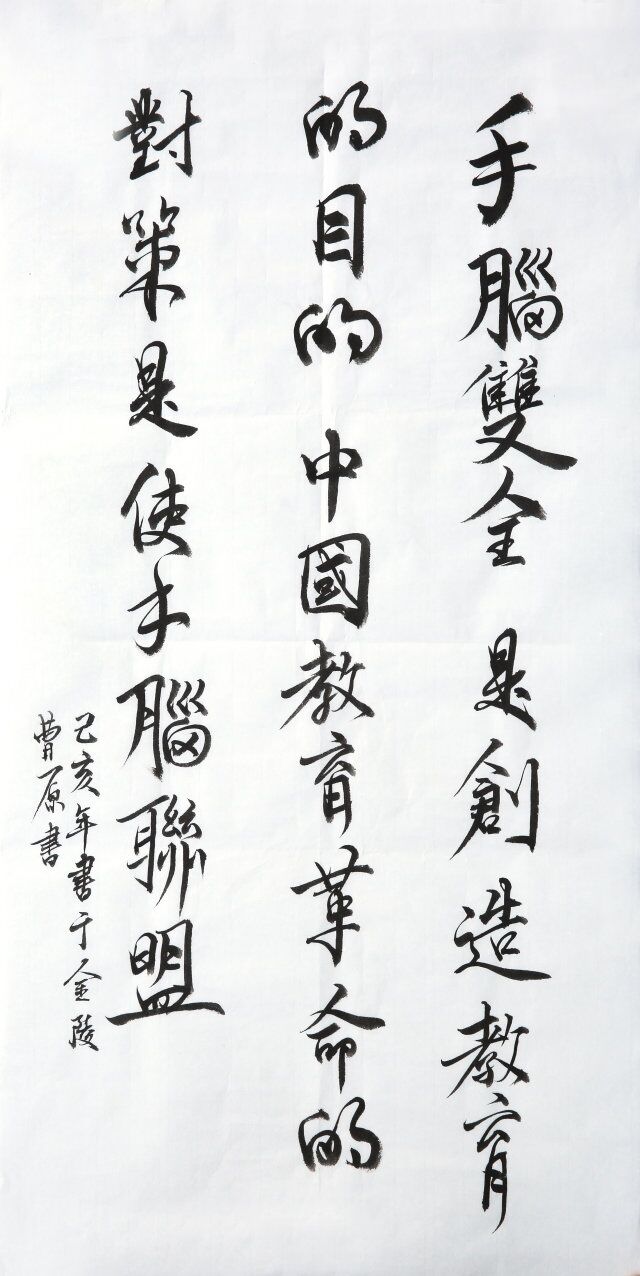 手腦雙全是創造教育
的目的中國教育革命的
對策是使手腦聯盟
己亥年書于金陵
曹原書